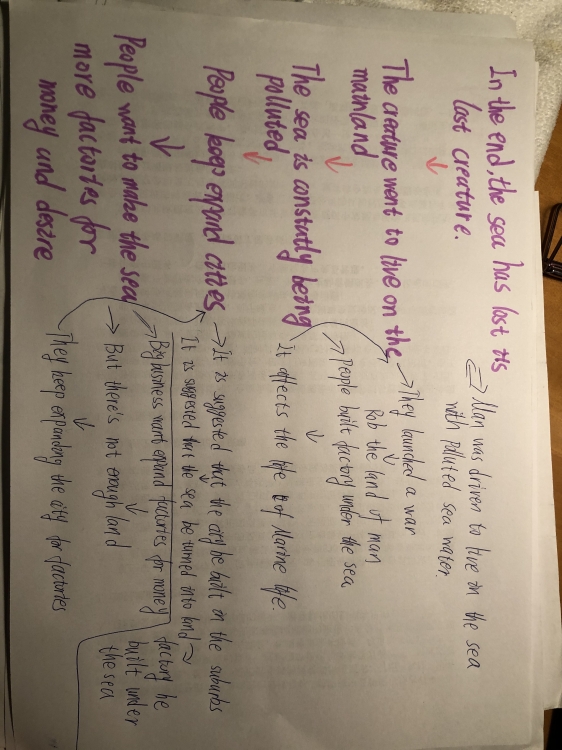 In the end, the sea has lost its
last creature.
The creature went to live on the
mainland
The sea is constantly being
polluted
People keep expand cities
People want to make the sea
more factories for
money and desire
Man was driven to live in the sea
with polluted sea water.
They launched a war
Rob the land of man
People built factory under the sea
It affects the life of Marine life.
It is suggested that the city be built in the suburbs
It is suggested that the sea be turned into land
Big business want expand factories for money
factory be
built under
the sea
But there's not enough land
They keep expanding the city for factories